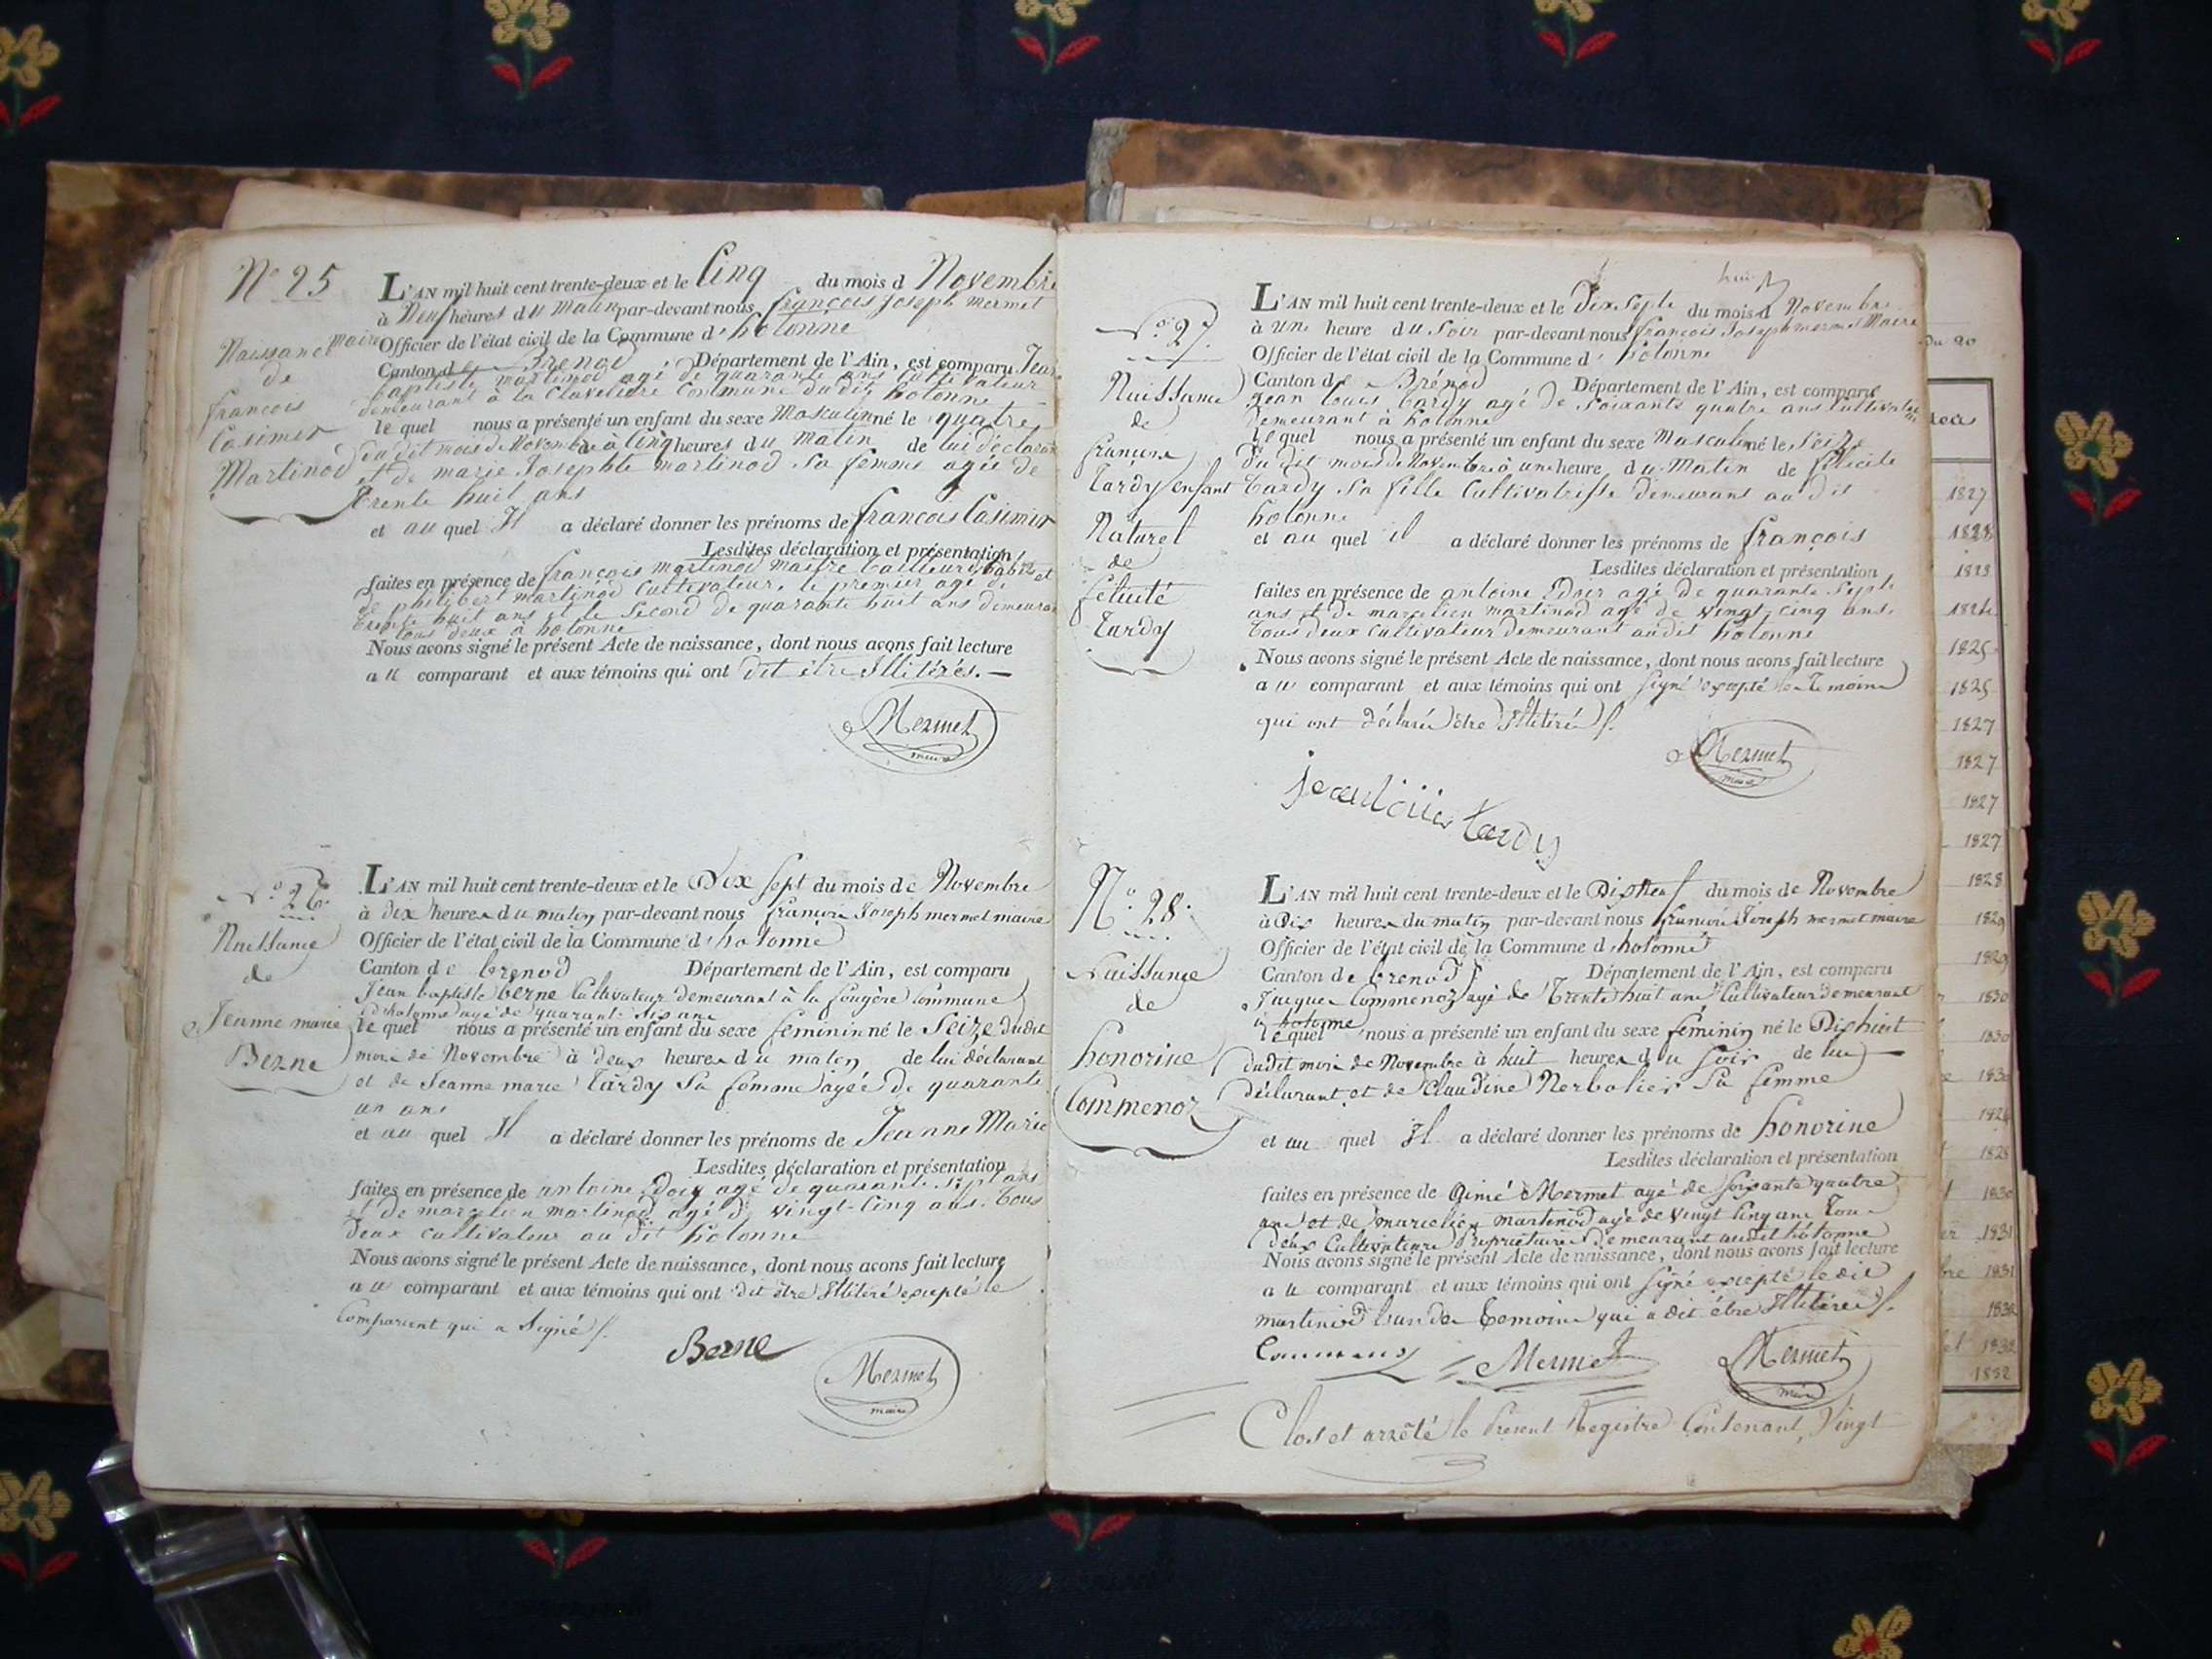 N° 25
Naissance
de
francois
Casimir
Martinod
L'AN mil huit cent trente-deux et le Cinq du mois d Novembre
à Neuf heures du Matin par-devant nous françois Joseph mermet
maire Officier de l'état civil de la Commune d'hotonne
Canton de Brenod, Département de l'Ain, est comparu Jean
baptiste martinod agé de quarante ans cultivateur
demeurant à la Claveliere Commune dudit hotonne
le quel nous a présenté un enfant du sexe Masculin né le quatre
du dit mois de Novembre à Cinq heures du Matin de lui déclarant
et de marie Josephte martinod sa femme agée de
trente huit ans
et au quel Il a déclaré donner les prénoms de francois Casimir
Lesdites déclaration et présentation
faites en présence de françois martinod maitre tailleur d'habits et
de philibert martinod cultivateur, le premier agé de
trente huit ans et le second de quarante huit ans demeurant
tous deux à hotonne
Nous avons signé le présent Acte de naissance, dont nous avons fait lecture
au comparant et aux témoins qui ont dit être Illitérés. —
Mermet
maire
N° 26.
Naissance
de
Jeanne marie
Berne
L'AN mil huit cent trente-deux et le Dix sept du mois de Novembre
à dix heures du matin par-devant nous francois Joseph mermet maire
Officier de l'état civil de la Commune d'hotonne
Canton de brenod Département de l'Ain, est comparu
Jean baptiste berne Cultivateur demeurant à la fougère Commune
d'hotonne agé de quarante six ans
le quel nous a présenté un enfant du sexe feminin né le Seize dudit
mois de Novembre à deux heures du matin de lui déclarant
et de Jeanne marie Tardy Sa femme agée de quarante
un ans
et au quel Il a déclaré donner les prénoms de Jeanne Marie
Lesdites déclaration et présentation
faites en présence de antoine Doir agé de quarante sept ans
et de marcelin martinod agé de vingt-Cinq ans. Tous
deux cultivateur au dit hotonne
Nous avons signé le présent Acte de naissance, dont nous avons fait lecture
au comparant et aux témoins qui ont dit être Illitéré excepté le
Comparant qui a Signé
Berne
Mermet
maire
N° 27.
Naissance
de
francois
Tardy enfant
Naturel
de
felicité
Tardy
huit
L'AN mil huit cent trente-deux et le Dix Sept du mois d Novembre
à une heure du Soir par-devant nous françois Joseph mermet Maire
Officier de l'état civil de la Commune d'hotonne
Canton de Brénod Département de l'Ain, est comparu
Jean Louis tardy agé de Soixante quatre ans Cultivateur
demeurant à hotonne
le quel nous a présenté un enfant du sexe Masculin né le Seize
du dit mois de Novembre à une heure du Matin de félicité
tardy Sa fille Cultivatrisse demeurant au dit
hotonne
et au quel il a déclaré donner les prénoms de françois
Lesdites déclaration et présentation
faites en présence de antoine Doir agé de quarante Sept
ans et de marcelien martinod agé de vingt cinq ans.
tous deux cultivateur demeurant audit hotonne
Nous avons signé le présent Acte de naissance, dont nous avons fait lecture
au comparant et aux témoins qui ont Signé excepté les Temoins
qui ont déclaré être Illitéré
Mermet
maire
jean louis tardy
N° 28.
Naissance
de
honorine
Commenoz
L'AN mil huit cent trente-deux et le Dis Neuf du mois de Novembre
à Dis heures du matin par-devant nous francois Joseph mermet maire
Officier de l'état civil de la Commune d'hotonne
Canton de brenod Département de l'Ain, est comparu
Jacques Commenoz agé de Trente huit ans Cultivateur demeurant
à hotonne
le quel nous a présenté un enfant du sexe féminin né le Dis huit
dudit mois de Novembre à huit heures du Soir de lui
déclarant et de Claudine Nerbolier Sa femme
et au quel Il a déclaré donner les prénoms de honorine
Lesdites déclaration et présentation
faites en présence de Aimé Mermet agé de soixante quatre
ans et de marcelien martinod agé de vingt Cinq ans Tous
deux Cultivateurs Proprietaires demeurant audit hotonne
Nous avons signé le présent Acte de naissance, dont nous avons fait lecture
au comparant et aux témoins qui ont Signé excepté le dit
martinod l'un des temoins qui a dit être Illitéré
Commenoz Mermet Mermet
maire
Clos et arrêté le Present Registre Contenant, Vingt
Du 20
1827
1828
1823
1824
1825
1825
1827
1827
1827
1827
1828
1829
1829
1830
1830
1830
1826
1828
1830
1831
bre 1831
1832
et 1832
1832